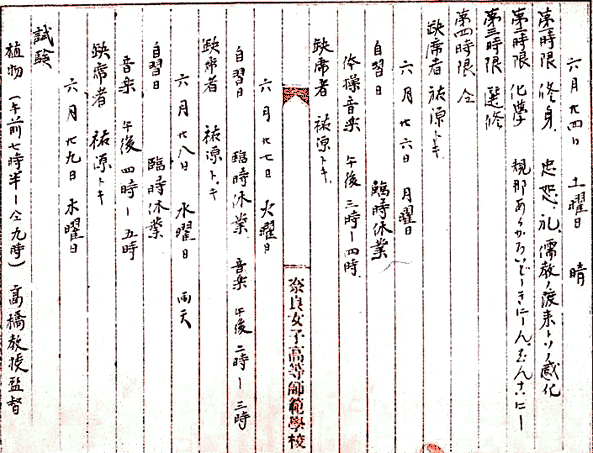 六月廿四日 土曜日 晴
第一時限 修身 忠恕、礼、儒教ノ渡来トソノ感化
第二時限 化学 規那あるかろいど―きにーん、しんこにー
第三時限 選修
第四時限 仝
欠席者 祐源トキ
六月廿六日 月曜日
自習日 臨時休業
体操音楽 午後 三時ー四時
欠席者 祐源トキ
奈良女子高等師範學校
六月廿七日 火曜日
自習日 臨時休業 音楽 午後二時ー三時
欠席者 祐源トキ
六月廿八日 水曜日 雨天
自習日 臨時休業
音楽 午後四時ー五時
欠席者 祐源トキ
六月廿九日 木曜日
試験
植物 (午前七時半ー仝九時) 高橋教授監督